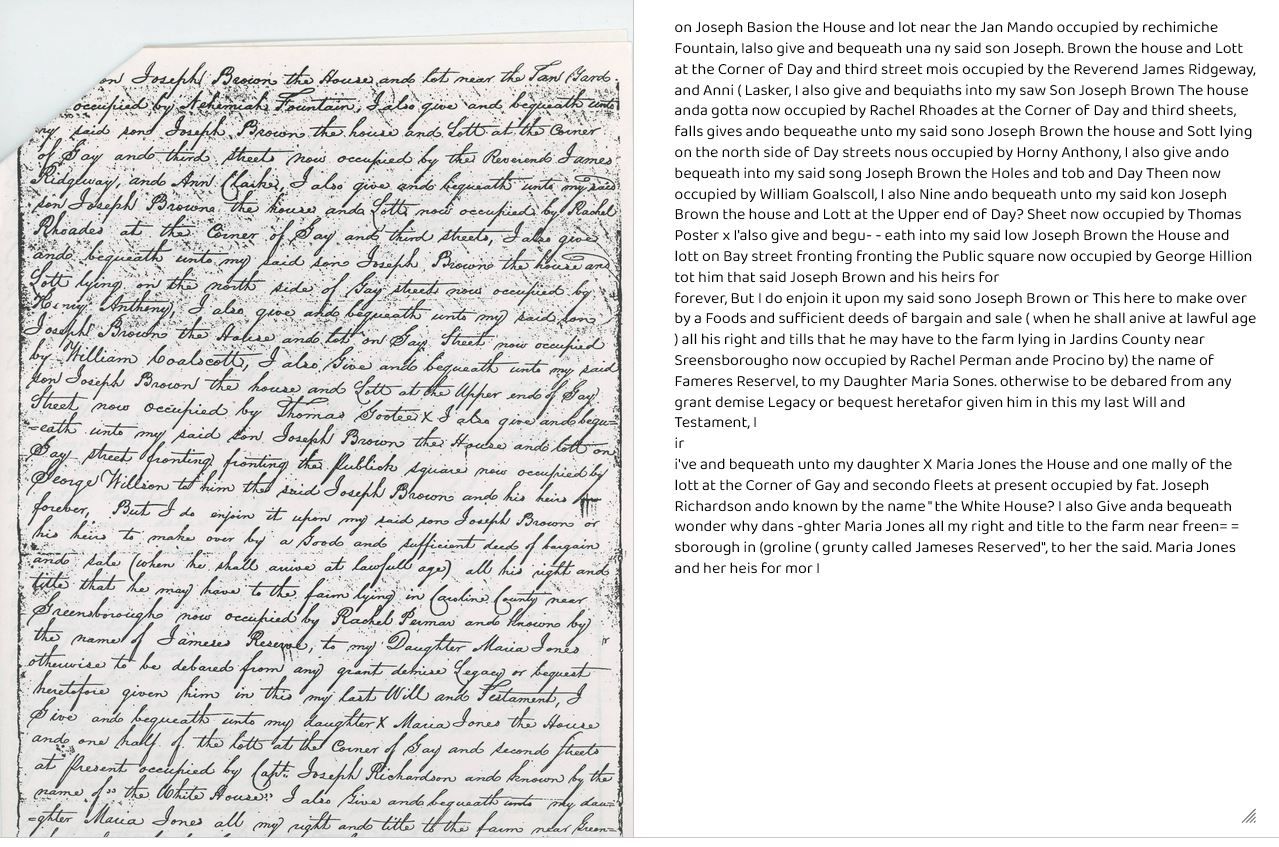 on Joseph Brown the House and lot near the Tan Yard
occupied by Nehemiah Fountain, I also give and bequeath unto
my said son Joseph Brown the house and Lott at the Corner
of Gay and third streets now occupied by the Reverend James
Ridgeway, and Ann Clarke, I also give and bequeath unto my said
son Joseph Brown the house and Lott now occupied by Rachel
Rhoades at the Corner of Gay and third streets, I also give
and bequeath unto my said son Joseph Brown the house and
Lott lying on the north side of Gay street now occupied by
Henry Anthony, I also give and bequeath unto my said son
Joseph Brown the House and lot on Gay Street now occupied
by William Coalscott, I also Give and bequeath unto my said
son Joseph Brown the house and Lott at the Upper end of Gay
Street now occupied by Thomas Gootee X I also give and bequ=
=eath unto my said son Joseph Brown the House and lott on
Gay street fronting fronting the Publick square now occupied by
George Willson to him the said Joseph Brown and his heirs
forever, But I do enjoin it upon my said son Joseph Brown or
his heirs to make over by a Good and sufficient deed of bargain
and sale (when he shall arrive at lawfull age) all his right and
title that he may have to the farm lying in Caroline County near
Greensborough now occupied by Rachel Permar and known by
the name of Jameses Reserve, to my Daughter Maria Jones
otherwise to be debared from any grant demise Legacy or bequest
heretofore given him in this my last Will and Testament, I
Give and bequeath unto my daughter X Maria Jones the House
and one half of the lott at the Corner of Gay and second streets
at present occupied by Capt. Joseph Richardson and known by the
name of "the White House" I also Give and bequeath unto my dau=
=ghter Maria Jones all my right and title to the farm near Green=
on Joseph Basion the House and lot near the Jan Mando occupied by rechimiche
Fountain, Ialso give and bequeath una ny said son Joseph. Brown the house and Lott
at the Corner of Day and third street mois occupied by the Reverend James Ridgeway,
and Anni ( Lasker, I also give and bequiaths into my saw Son Joseph Brown The house
anda gotta now occupied by Rachel Rhoades at the Corner of Day and third sheets,
falls gives ando bequeathe unto my said sono Joseph Brown the house and Sott lying
on the north side of Day streets nous occupied by Horny Anthony, I also give ando
bequeath into my said song Joseph Brown the Holes and tob and Day Theen now
occupied by William Goalscoll, I also Nine ando bequeath unto my said kon Joseph
Brown the house and Lott at the Upper end of Day? Sheet now occupied by Thomas
Poster x I'also give and begu- - eath into my said low Joseph Brown the House and
lott on Bay street fronting fronting the Public square now occupied by George Hillion
tot him that said Joseph Brown and his heirs for
forever, But I do enjoin it upon my said sono Joseph Brown or This here to make over
by a Foods and sufficient deeds of bargain and sale ( when he shall anive at lawful age
) all his right and tills that he may have to the farm lying in Jardins County near
Sreensborougho now occupied by Rachel Perman ande Procino by) the name of
Fameres Reservel, to my Daughter Maria Sones. otherwise to be debared from any
grant demise Legacy or bequest heretafor given him in this my last Will and
Testament, I
ir
i've and bequeath unto my daughter X Maria Jones the House and one mally of the
lott at the Corner of Gay and secondo fleets at present occupied by fat. Joseph
Richardson ando known by the name " " the White House? I also Give anda bequeath
wonder why dans -ghter Maria Jones all my right and title to the farm near freen= =
sborough in (groline ( grunty called Jameses Reserved", to her the said. Maria Jones
and her heis for mor I